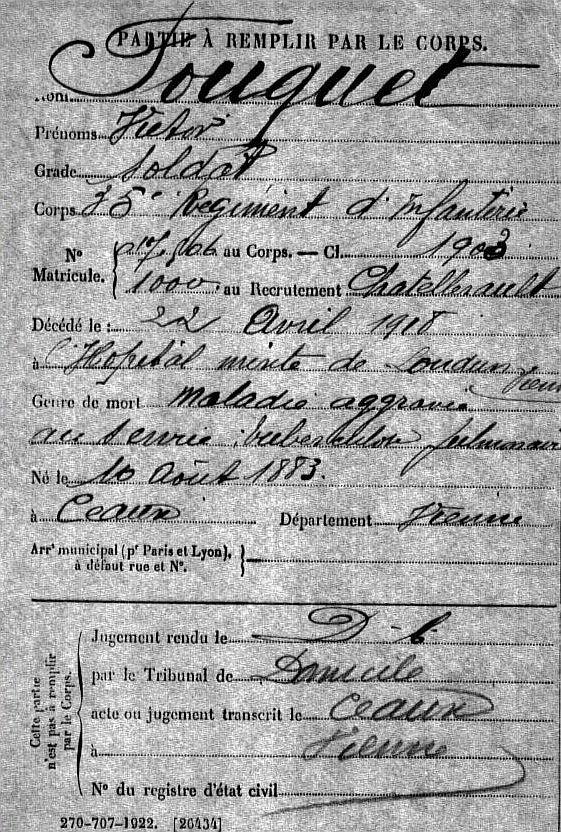 PARTIE À REMPLIR PAR LE CORPS.
Nom Fouquet
Prénoms Victor
Grade Soldat
Corps 35e Régiment d'Infanterie
No Matricule.
au Corps. — Cl. 1903
1000 au Recrutement Chatellerault
Décédé le : 22 Avril 1918
à l'Hopital mixte de Loudun Vienne
Genre de mort maladie aggravée
au service : tuberculose pulmonaire
Né le 10 Août 1883.
à Ceaux Département Vienne
Arrt municipal (pr Paris et Lyon), à défaut rue et No.
Cette partie n'est pas à remplir par le Corps.
Jugement rendu le D-6
par le Tribunal de Domicile
acte ou jugement transcrit le Ceaux
à Vienne
No du registre d'état civil
270-707-1922. [26434]